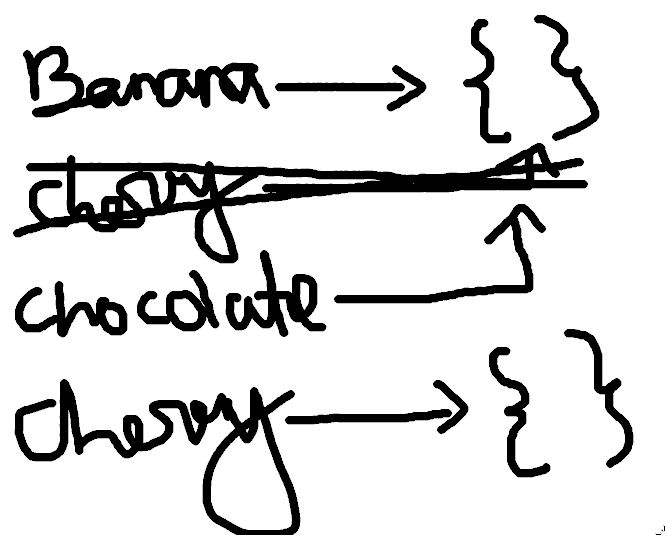 Banana → { }
cherry
chocolate
cherry → { }